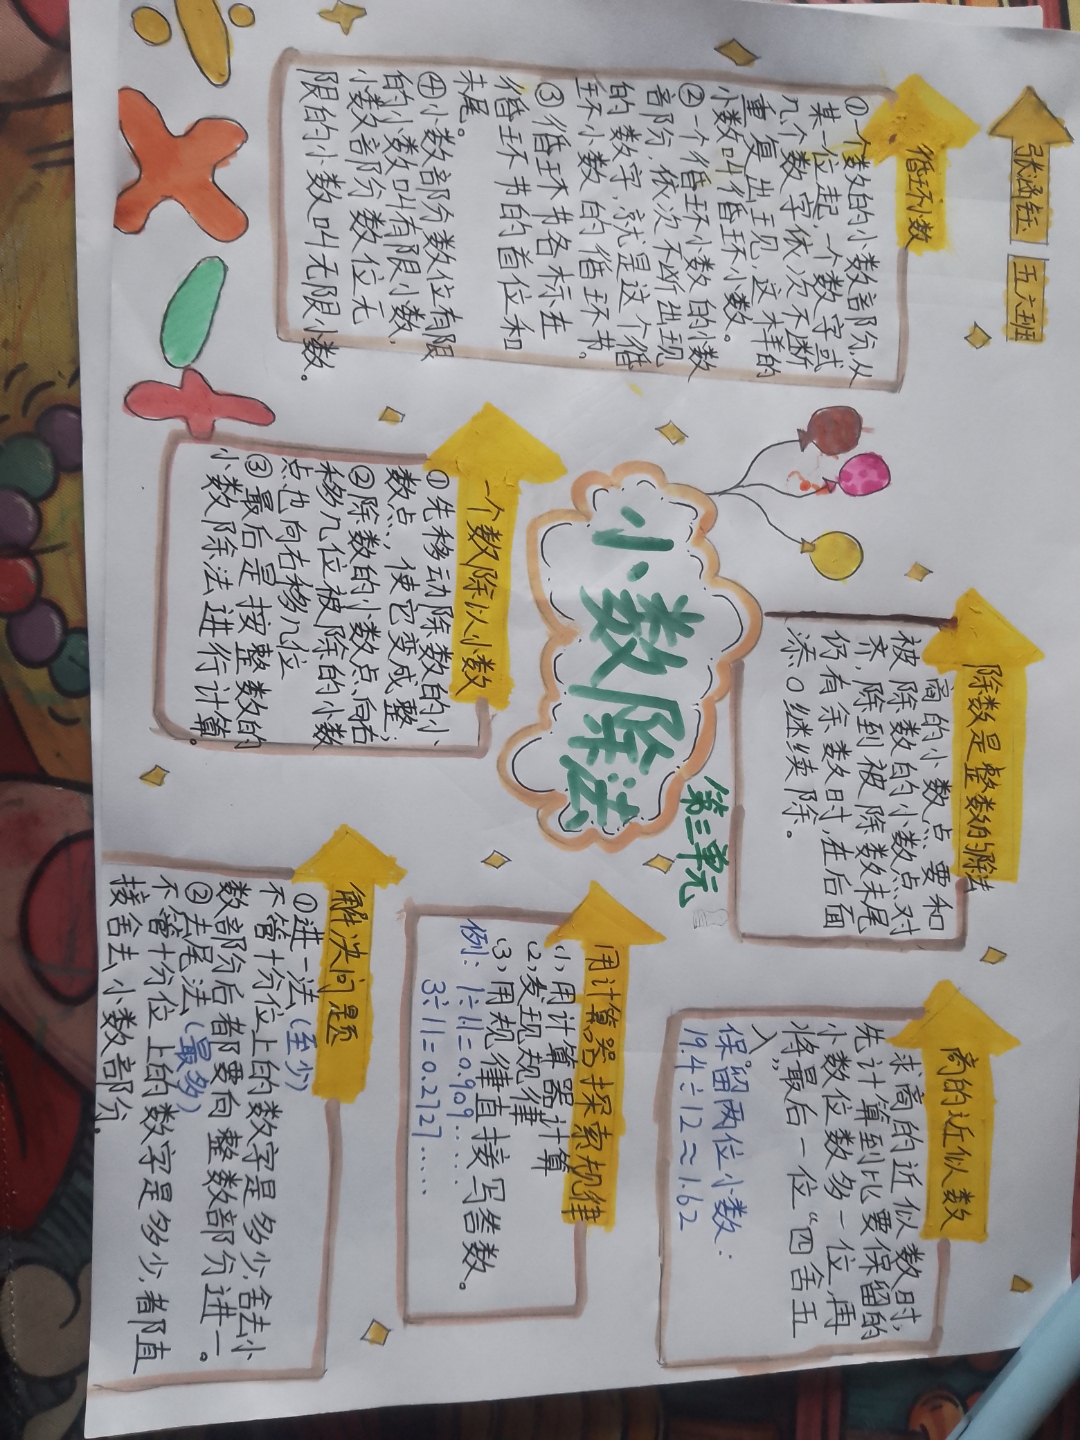 张涵钰 五六班
循环小数
①一个数的小数部份,从
某一位起,一个数字或
几个数字依次不断
重复出现,这样的
小数叫循环小数。
②一个循环小数的小数
部份,依次不断出现
的数字,就是这个循
环小数的循环书。
③循环书各标在
循环书的首位和
末尾。
④小数部分数位有限
的小数叫有限小数.
小数部分数位无
限的小数叫无限小数。
一个数除以小数
①先移动除数的小
数点,使它变成整;
②除数的小数点向右
移几位被除的小数
点也向右移几位
③最后是按整数的
小数除法进行计算。
小数除法
第三单元
除数是整数的除法
商的小数点要和
被除数的小数点对
齐,除到被除数末尾
仍有余数时,在后面
添0继续除。
商的近似数
求商的近似数时,
先计算到比要保留的
小数位数多一位,再
将最后一位“四舍五
入”
保留两位小数:
19.4÷12≈1.62
用计算器探索规律
1,用计算器计算
2,发现规律
3,用规律直接写答数。
例:1÷11=0.909……
3÷11=0.2727……
解决问题
①进一法(至少)
不管十分位上的数字是多少,舍去小
数部份后都要向整数部分进一。
②去尾法(最多)
不管十分位上的数字是多少,都直
接舍去小数部分.